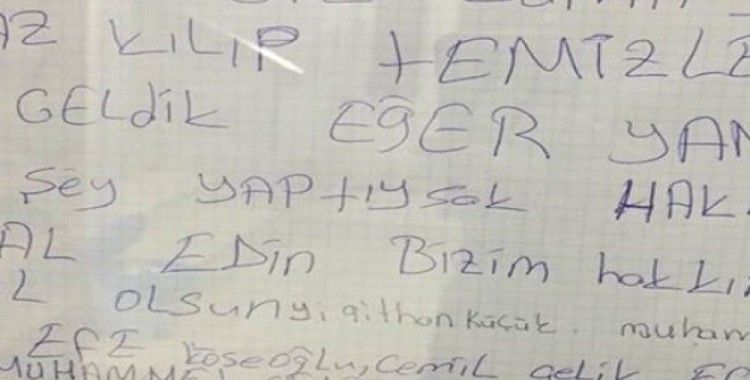 AZ KILIP tEMİZLE
GELdiK EĞER YAN
Şey YAPtIysak HAK
AL EDin Bizim hakkı
L OLsun yiğithan Küçük. muham
EFE Köseoğlu, Cemil çelik
MUHAMME